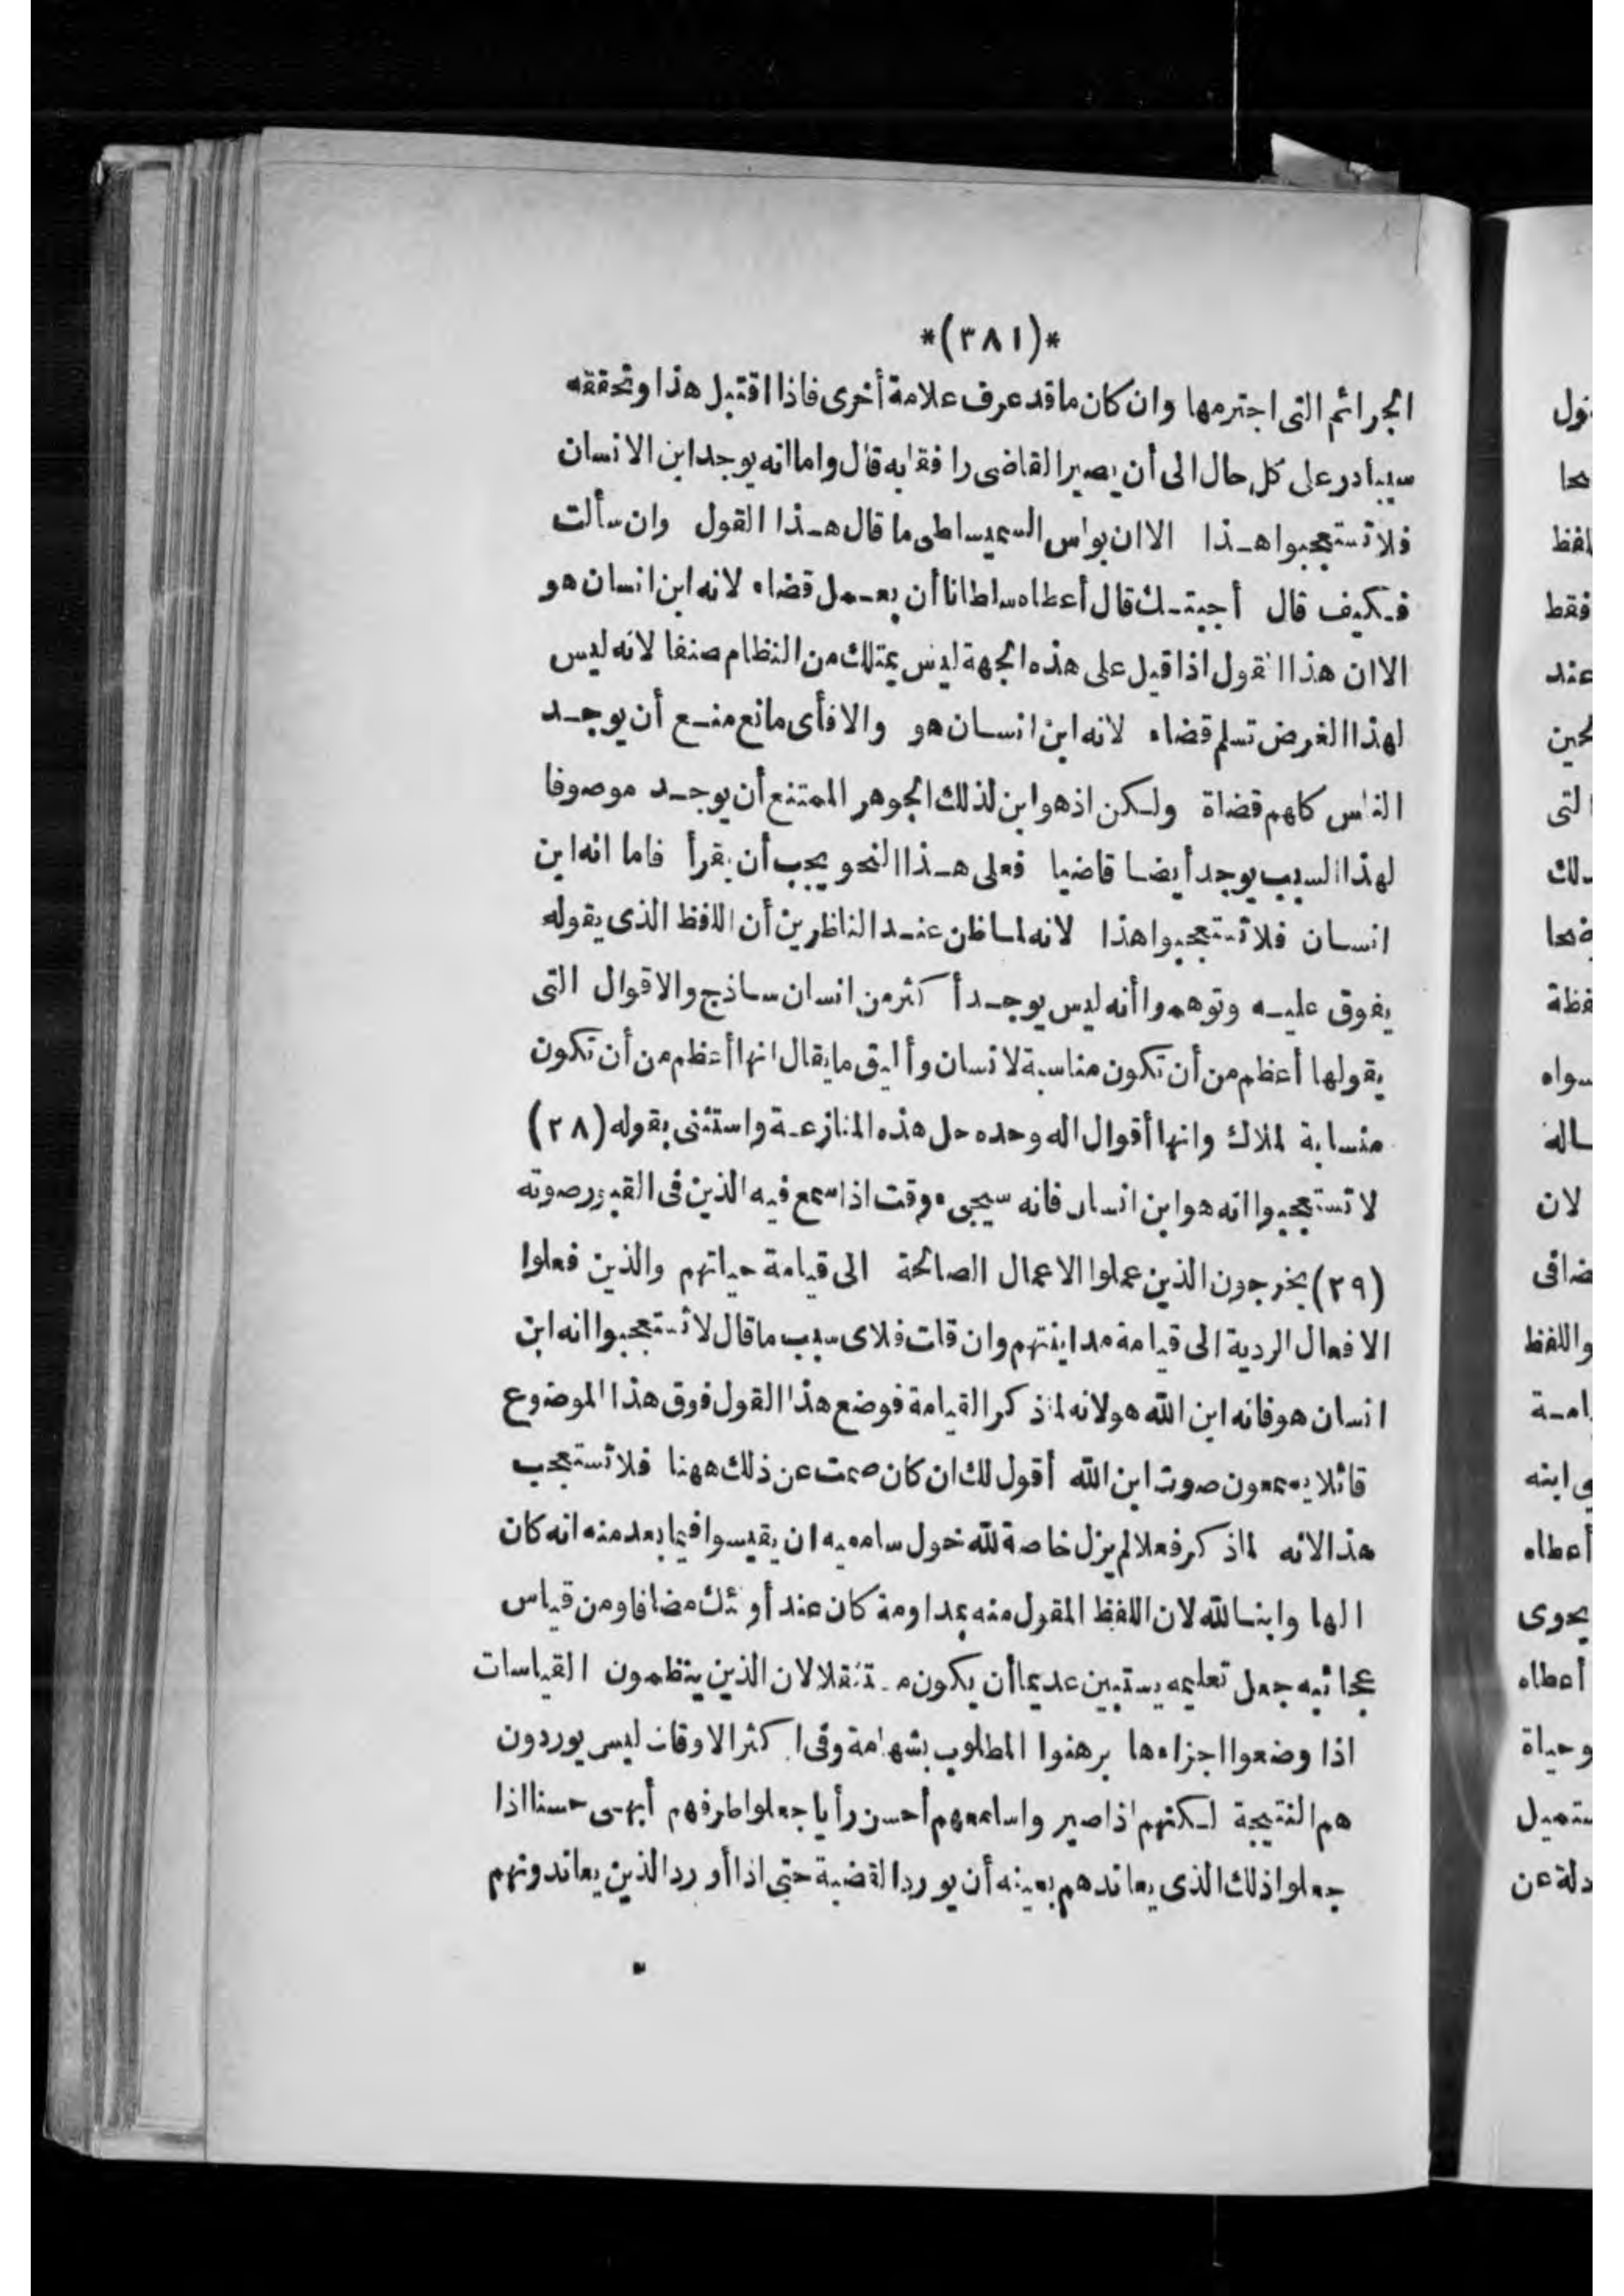 *(٣٨١)*
الجرائم التى اجترمها وان كان ما قد عرف علامة أخرى فاذا اقتبل هذا وتحققه
سيبادر على كل حال الى أن يصير القاضى رافقا به قال واما انه يوجد ابن الانسان
فلا تستعجبوا هذا الا ان بولس السميساطى ما قال هذا القول وان سألت
فكيف قال أجبتك قال أعطاه سلطانا أن يعمل قضاء لانه ابن انسان هو
الا ان هذا القول اذا قيل على هذه الجهة ليس يمتلك من النظام صنفا لانه ليس
لهذا الغرض تسلم قضاء لانه ابن انسان هو والا فأى مانع منع أن يوجد
الناس كلهم قضاة ولكن اذ هو ابن لذلك الجوهر الممتنع أن يوجد موصوفا
لهذا السبب يوجد أيضا قاضيا فعلى هذا النحو يجب أن يقرأ فاما انه ابن
انسان فلا تستعجبوا هذا لانه لما ظن عند الناظرين أن اللفظ الذى يقوله
يفوق عليه وتوهموا أنه ليس يوجد أكثر من انسان ساذج والاقوال التى
يقولها أعظم من أن تكون مناسبة لانسان وأليق ما يقال انها أعظم من أن تكون
منسابة لملاك وانها أقوال اله وحده حل هذه المنازعة واستثنى بقوله (٢٨)
لا تستعجبوا انه هو ابن انسان فانه سيجىء وقت اذا سمع فيه الذين فى القبور صوته
(٢٩) يخرجون الذين عملوا الاعمال الصالحة الى قيامة حياتهم والذين فعلوا
الافعال الردية الى قيامة مداينتهم وان قلت فلاى سبب ما قال لا تستعجبوا انه ابن
انسان هو فانه ابن الله هو لانه لما ذكر القيامة فوضع هذا القول فوق هذا الموضوع
قائلا يسمعون صوت ابن الله أقول لك ان كان صمت عن ذلك ههنا فلا تستعجب
هذا لانه لما ذكر فعلا لم يزل خاصة لله خول سامعيه ان يقيسوا فيما بعد منه انه كان
الها وابنا لله لان اللفظ المقول منه بمداومة كان عند أولئك مضافا ومن قياس
عجائبه جعل تعليمه يستبين عديما أن يكون مستثقلا لان الذين ينظمون القياسات
اذا وضعوا اجزاءها برهنوا المطلوب بشهامة وفى اكثر الاوقات ليس يوردون
هم النتيجة لكنهم اذا صيروا سامعهم أحسن رأيا جعلوا ظرفهم أبهى حسنا اذا
جعلوا ذلك الذى يعاندهم بعينه أن يورد القضية حتى اذا أورد الذين يعاندونهم